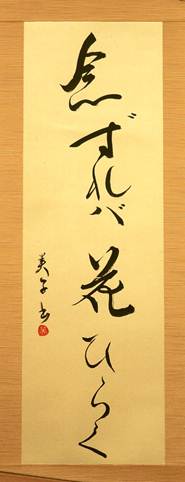 念ずれば花ひらく
美子書